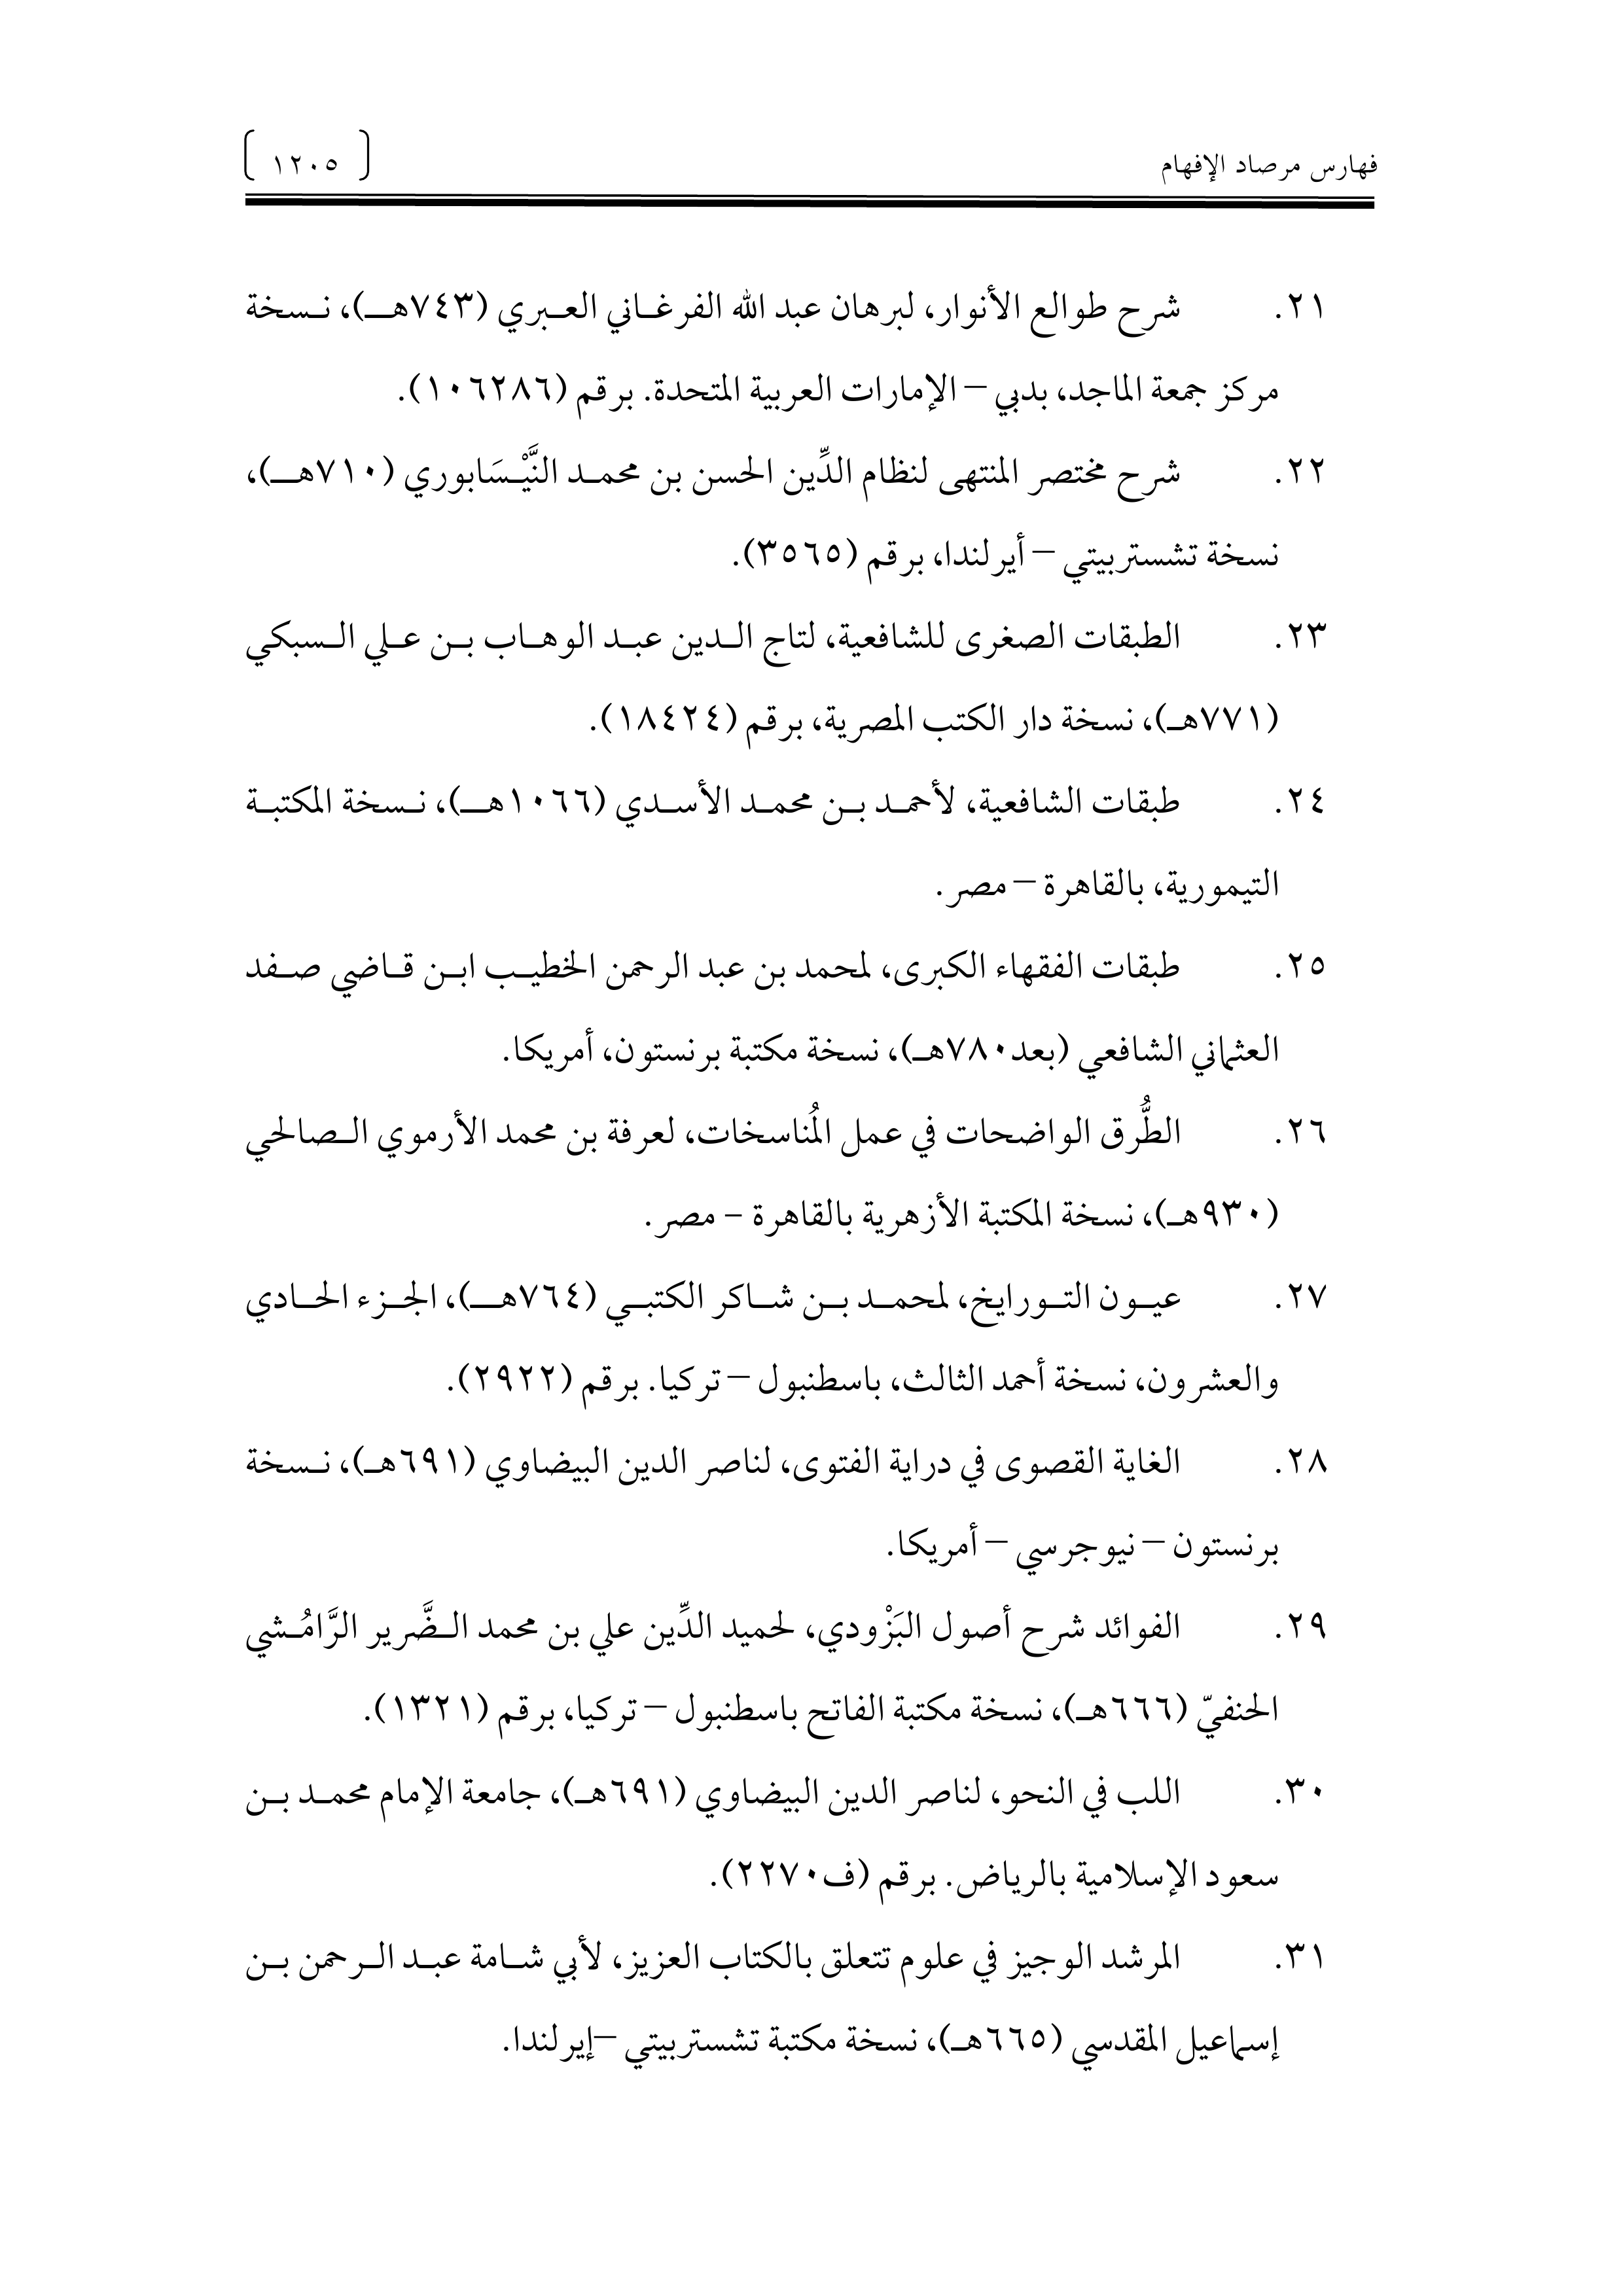 فهارس مرصاد الإفهام [ ١٢٠٥ ]
٢١. شرح طوالع الأنوار، لبرهان عبد الله الفرغاني العبري (٧٤٣هـ)، نسخة
مركز جمعة الماجد، بدبي – الإمارات العربية المتحدة. برقم (١٠٦٢٨٦).
٢٢. شرح مختصر المنتهى لنظام الدِّين الحسن بن محمد النَّيْسَابوري (٧١٠هـ)،
نسخة تشستربيتي – أيرلندا، برقم (٣٥٦٥).
٢٣. الطبقات الصغرى للشافعية، لتاج الدين عبد الوهاب بن علي السبكي
(٧٧١هـ)، نسخة دار الكتب المصرية، برقم (١٨٤٢٤).
٢٤. طبقات الشافعية، لأحمد بن محمد الأسدي (١٠٦٦هـ)، نسخة المكتبة
التيمورية، بالقاهرة – مصر.
٢٥. طبقات الفقهاء الكبرى، لمحمد بن عبد الرحمن الخطيب ابن قاضي صفد
العثماني الشافعي (بعد٧٨٠هـ)، نسخة مكتبة برنستون، أمريكا.
٢٦. الطُّرق الواضحات في عمل المُناسخات، لعرفة بن محمد الأرموي الصالحي
(٩٣٠هـ)، نسخة المكتبة الأزهرية بالقاهرة - مصر.
٢٧. عيون التورايخ، لمحمد بن شاكر الكتبي (٧٦٤هـ)، الجزء الحادي
والعشرون، نسخة أحمد الثالث، باسطنبول – تركيا. برقم (٢٩٢٢).
٢٨. الغاية القصوى في دراية الفتوى، لناصر الدين البيضاوي (٦٩١هـ)، نسخة
برنستون – نيوجرسي – أمريكا.
٢٩. الفوائد شرح أصول البَزْودي، لحميد الدِّين علي بن محمد الضَّرير الرَّامُشي
الحنفيّ (٦٦٦هـ)، نسخة مكتبة الفاتح باسطنبول – تركيا، برقم (١٣٢١).
٣٠. اللب في النحو، لناصر الدين البيضاوي (٦٩١هـ)، جامعة الإمام محمد بن
سعود الإسلامية بالرياض. برقم (ف٢٢٧٠).
٣١. المرشد الوجيز في علوم تتعلق بالكتاب العزيز، لأبي شامة عبد الرحمن بن
إسماعيل المقدسي (٦٦٥هـ)، نسخة مكتبة تشستربيتي –إيرلندا.